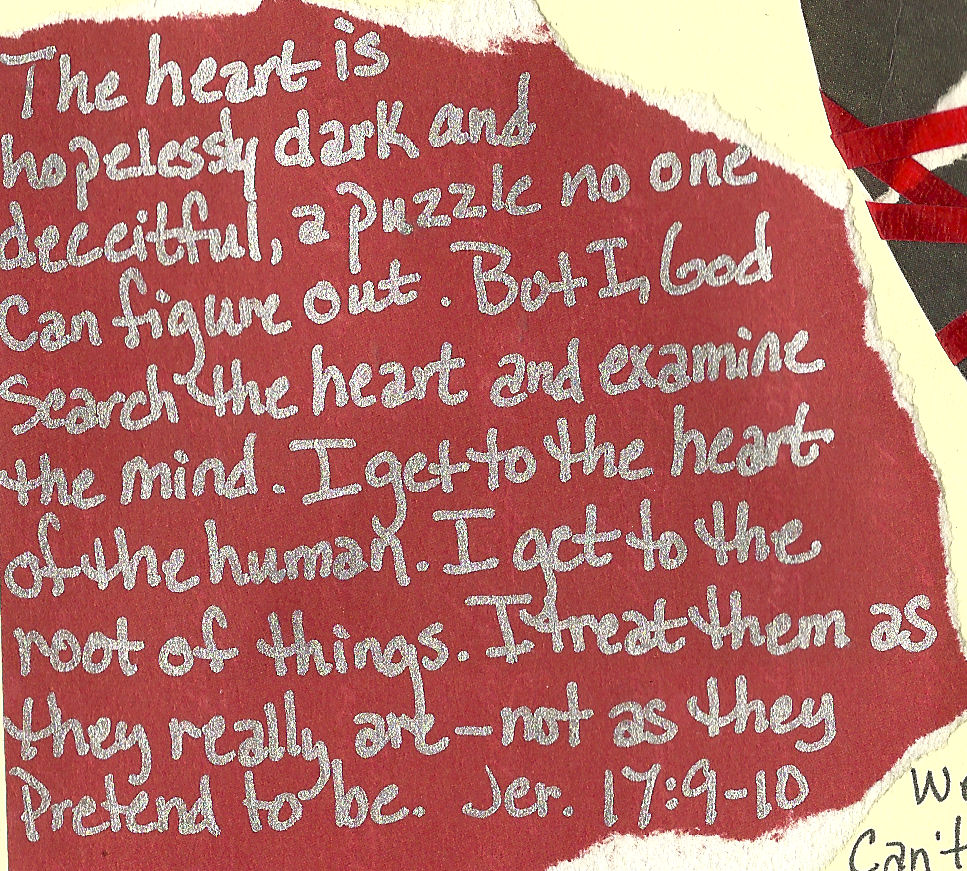 The heart is
hopelessly dark and
deceitful, a puzzle no one
Can figure out. But I, God
Search the heart and examine
the mind. I get to the heart
of the human. I get to the
root of things. I treat them as
they really are—not as they
Pretend to be. Jer. 17:9-10
Can't